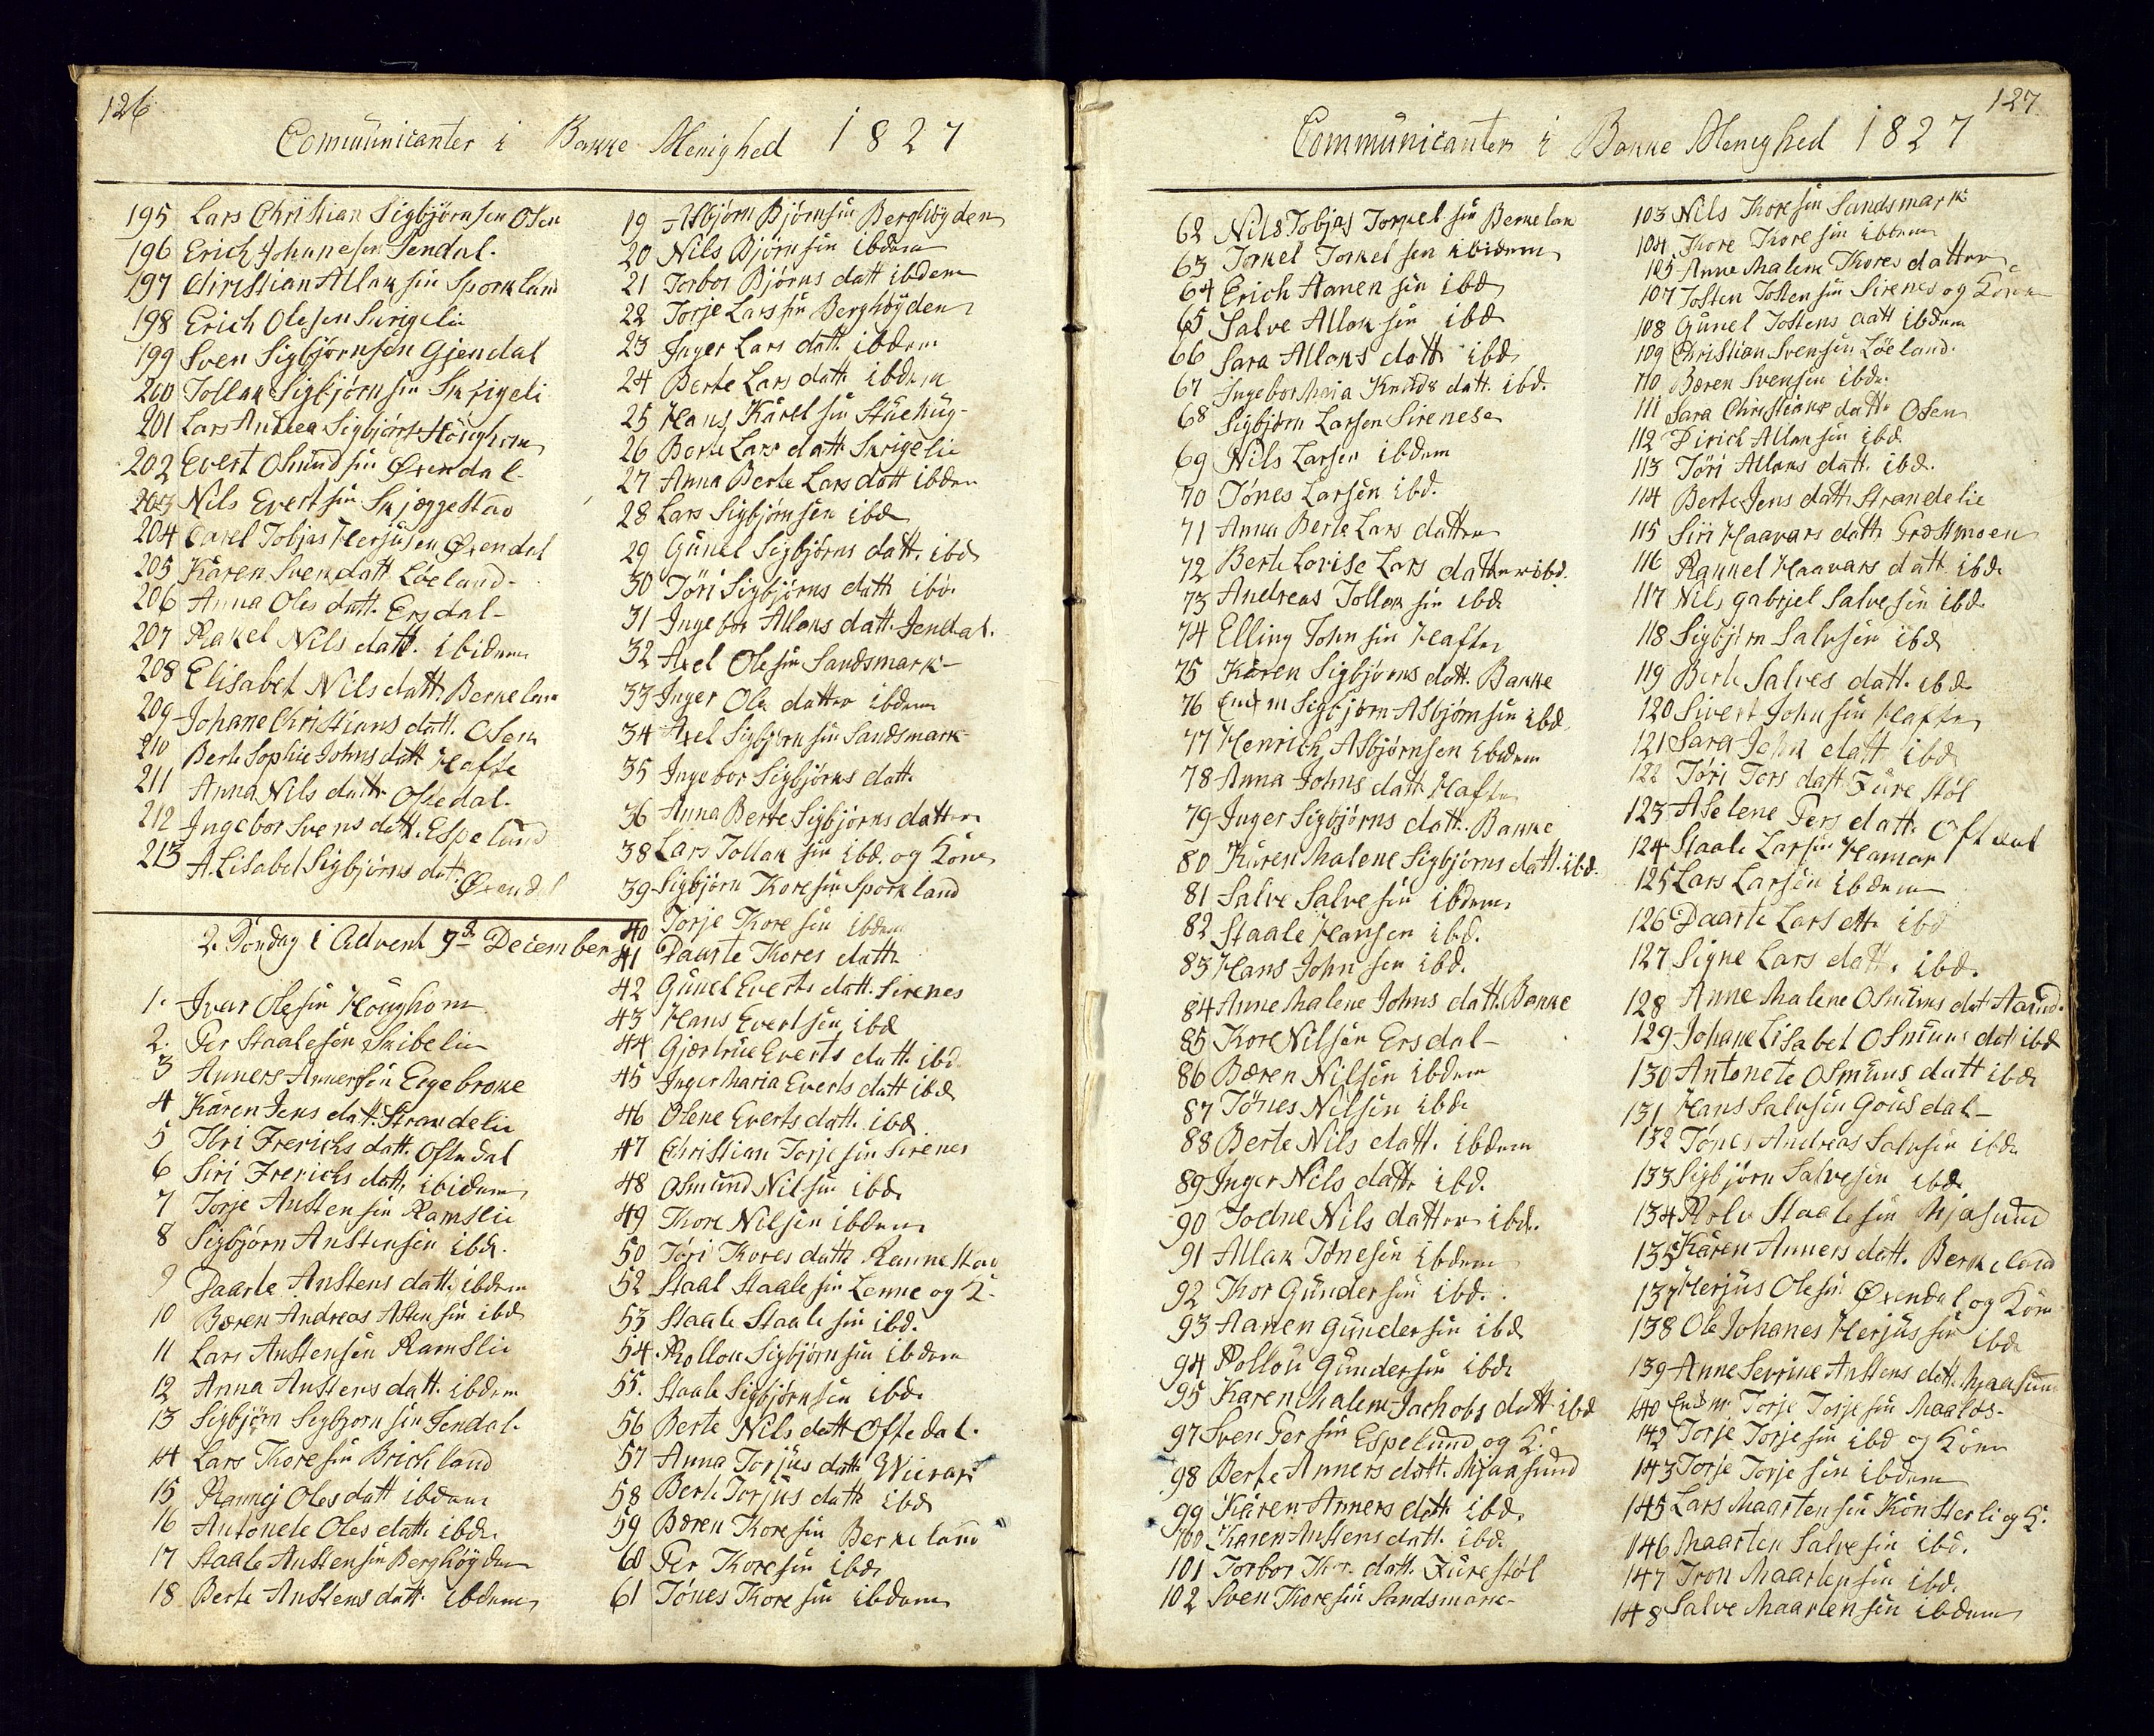 126
Communicanter i Bakke Menighed 1827
195 Lars Christian Sigbjörnsen Osen
196 Erich Johanesen Jendal.
197 Christian Atlaksin Sporkland
198 Erich Olesen Skrigelie
199 Sven Sigbjörnsen Gjendal
200 Tollak Sigbjörnsin Skrigeli
201 Lars Andrea Sigbjörns Höüghom
202 Evert Osmündsin Øxendal
203 Nils Evertsin Skjæggestad
204 Carel Tobjas Herjusen Øxendal
205 Karen Sven datt Löeland-
206 Anna Oles datt. Ersdal-
207 Rakel Nils datt. ibidem
208 Elisabet Nils datt. Berkeland
209 Johane Christians datt. Osen
210 Berte Sophie Johns datt Hafte
211 Anna Nils datt. Oftedal.
212 Ingebor Svens datt. Espelund
213 A. Lisabet Sigbjörns dat. Øxendal
2. Sondag i Advent 9de December
1. Ivar Olesin Höüghom
2. Per Staalesen Skibelie
3 Anners Annersen Eegebroke
4 Karen Jens datt. Strandelie
5 Thri Frerichs datt. Oftedal
6 Siri Frerichs datt. ibidem
7 Torje Austensin Ramslie
8 Sigbjörn Austensin ibd.
9 Daarte Austens datt. ibdem
10 Bæren Andreas Astensin ibd
11 Lars Austensen Ramslie
12 Anna Austens datt. ibdem
13 Sigbjörn Sigbjornsin Jendal.
14 Lars Thoresin Brichland
15 Rannej Oles datt ibdem
16 Antonete Oles datt. ibd.
17 Staale Austensin Berghöyden
18 Berte Austens datt. ibdem
19 Asbjörn Björnsin Berghöyden
20 Nils Björnsin ibdem
21 Torbor Björns datt ibdem
22 Torje Larssin Berghöyden
23 Inger Lars datt. ibdem
24 Berte Lars datt. ibdem
25 Hans Karelsin Stüehüg-
26 Berte Lars datt. Skrigelie
27 Anna Berte Lars datt ibdem
28 Lars Sigbjörnsen ibd
29 Günel Sigbjörns datt. ibd
30 Töri Sigbjörns datt. ibd.
31 Ingebor Atlaks datt. Jendal.
32 Axel Olesin Sandsmark-
33 Inger Ole datter ibdem
34 Axel Sigbjörnsin Sandsmark-
35 Ingebor Sigbjörns datt.
36 Anna Berte Sigbjörns datter
38 Lars Tollaksin ibd. og Kone
39 Sigbjörn Koresin Sporkland
40 Torje Thoresin ibdem
41 Daarte Thores datt.
42 Günel Everts datt. Sirenes
43 Hans Evertsen ibd
44 Gjertrüe Everts datt. ibd.
45 Inger Maria Everts datt ibd
46 Olene Everts datt. ibd
47 Christian Torjesin Sirenes
48 Osmünd Nilsin ibd.
49 Thore Nilsin ibdem
50 Töri Thores datt. Rannestad
52 Staal Staalesin Lenne og K-
53 Staale Staalesin ibd.
54 Rollou Sigbjörnsin ibdem
55. Staale Sigbjörnsen ibd.
56 Berte Nils datt Oftedal.
57 Anna Torjüs datt.
58 Berte Torjüs datt. ibd
59 Bæren Thoresin Berkeland
60 Per Thoresin ibd.
61 Tönes Thoresin ibdem
127
Communicanter i Bakke Menighed 1827
62 Nils Tobjas Torkelsin Berkeland
63 Torkel Torkelsen ibidem
64 Erich Aanensin ibd
65 Salve Atlaksin ibd
66 Sara Atlaks datt. ibd.
67 Ingebor Maia Knuds datt. ibd.
68 Sigbjörn Larsen Sirenese
69 Nils Larsen ibdem
70 Tönes Larsen ibd.
71 Anna Berte Lars datter
72 Berte Lovise Lars datter ibd.
73 Andreas Tollaksin ibd
74 Elling Johnsin Hafte
75 Karen Sigbjörns datt. Bakke
76 Enkm Sigbjörn Asbjörnsin ibd
77 Henrich Asbjörnsen ibdem
78 Anna Johns datt Hafte
79 Inger Sigbjörns datt. Bakke
80 Karen Malene Sigbjörns datt. ibd.
81 Salve Salvesin ibdem
82 Staale Hansen ibd.
83 Hans Johnsen ibd.
84 Anne Malene Johns datt. Bakke
85 Kore Nilsen Ersdal-
86 Bæren Nilsen ibdem
87 Tönes Nilsin ibd.
88 Berte Nils datt. ibdem
89 Inger Nils datt. ibd.
90 Todne Nils datter ibd.
91 Atlak Tönesin ibdem
92 Thor Gündersin ibd.
93 Aanen Gündersin ibd
94 Rollou Gündersin ibd.
95 Karen Malene Jachobs datt ibd
97 Sven Persin Espelund og K.
98 Berte Anners datt. Mjaasund
99 Karen Anners datt. ibd.
100 Karen Austens datt. ibd.
101 Torbor Thor. datt. Fürestöl
102 Sven Thoresin Sandsmark-
103 Nils Thoresin Sandsmark
104 Thore Thoresin ibdem
105 Anne Malene Thores datter
107 Josten Jostensin Sirenes og Kone
108 Günel Jostens datt ibdem
109 Christian Svensin Löeland.
110 Bæren Svensin ibd.
111 Sara Christians datt. Osen
112 Dirich Atlaksin ibd.
113 Töri Atlaks datt. ibd.
114 Berte Jens datt. Strandelie
115 Siri Haavars datt. Frostmoen
116 Rannel Haavars datt. ibd.
117 Nils Gabrjel Salvesin ibd.
118 Sigbjörn Salvsin ibd
119 Berte Salves datt. ibd.
120 Sivert Johnsin Hafte
121 Sara John datt ibd
122 Töri Tors datt Fürestöl
123 Aselene Pers datt. Oftedal
124 Staale Larsin Hamar
125 Lars Larsen ibdem
126 Daarte Lars dtt. ibd
127 Signe Lars datt. ibd.
128 Anne Malene Osmuns dat
129 Johane Lisabet Osmuns dat ibd
130 Antonete Osmuns datt ibd
131 Hans Salvsin Gousdal-
132 Tönes Andreas Salvsin ibd.
133 Sigbjörn Salvesin ibd.
134 Rolv Staalesin Mjasund
135 Karen Anners datt. Berkeland
137 Herjus Olesin Øxendal og Kone
138 Ole Johanes Herjussin ibd
139 Anne Serrine Austens datt. Mjaasund
140 Enkm. Torje Torjesin
142 Torje Torjesin ibd og Kone
143 Torje Torjesin ibdem
145 Lars Maartensin Könsterli og K.
146 Maarten Salvesin ibd.
147 Tron Maartensin ibd.
148 Salve Maartensin ibdem